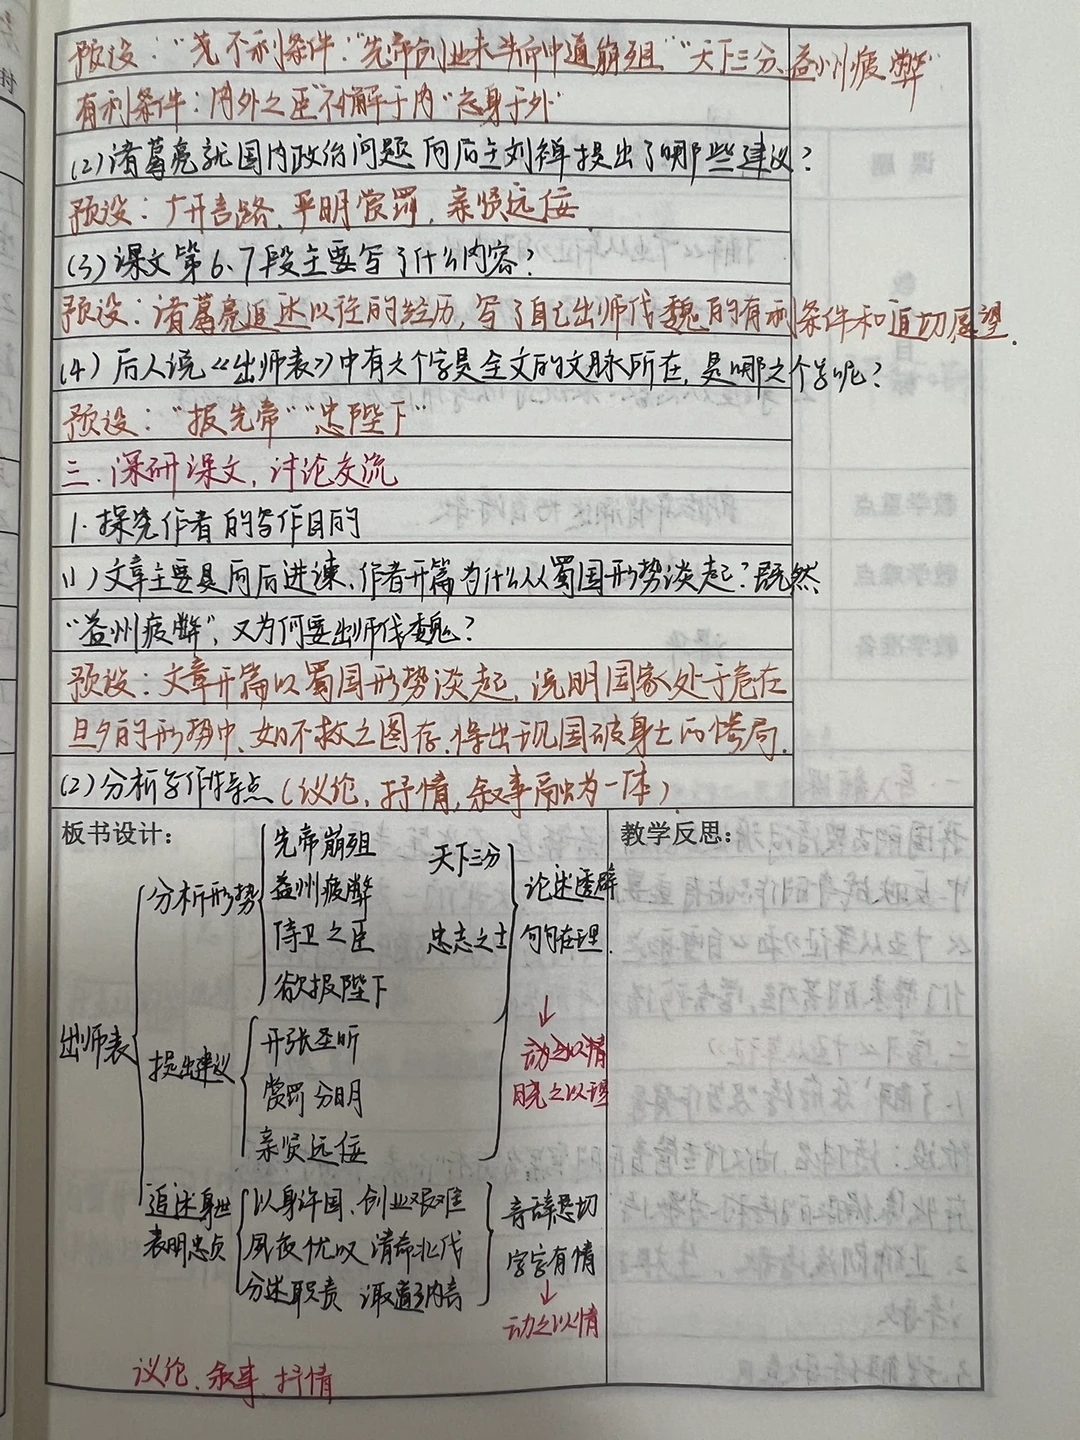 预设：“先不利条件：“先帝创业未半而中道崩殂”“天下三分、益州疲弊”
有利条件：内外之臣“不懈于内”“忘身于外”
(2)诸葛亮就国内政治问题向后主刘禅提出了哪些建议？
预设：广开言路、平明赏罚，亲贤远佞
(3)课文第6、7段主要写了什么内容？
预设：诸葛亮追述以往的经历，写了自己出师伐魏的有利条件和迫切愿望.
(4)后人说《出师表》中有六个字是全文的文脉所在，是哪六个字呢？
预设：“报先帝”“忠陛下”
三.深研课文，讨论交流
1.探究作者的写作目的
(1)文章主要是向后进谏、作者开篇为什么从蜀国形势谈起？既然
“益州疲弊”，又为何要出师伐魏？
预设：文章开篇以蜀国形势谈起，说明国家处于危在
旦夕的形势中、如不救亡图存、将出现国破身亡的惨局.
(2)分析写作特点（议论，抒情，叙事融为一体）
板书设计：
教学反思：
出师表
分析形势
先帝崩殂 天下三分
益州疲弊
侍卫之臣 忠志之士
欲报陛下
提出建议
开张圣听
赏罚分明
亲贤远佞
论述透辟
句句在理.
↓
动之以情
晓之以理
追述身世
表明忠贞
以身许国、创业艰难
夙夜忧叹 请命北伐
分述职责
言辞恳切
字字有情
↓
动之以情
议论、叙事、抒情